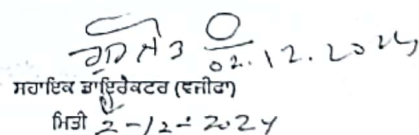 02.12.2024
ਸਹਾਇਕ ਡਾਇਰੈਕਟਰ (ਵਜੀਫਾ)
ਮਿਤੀ 2-12-2024